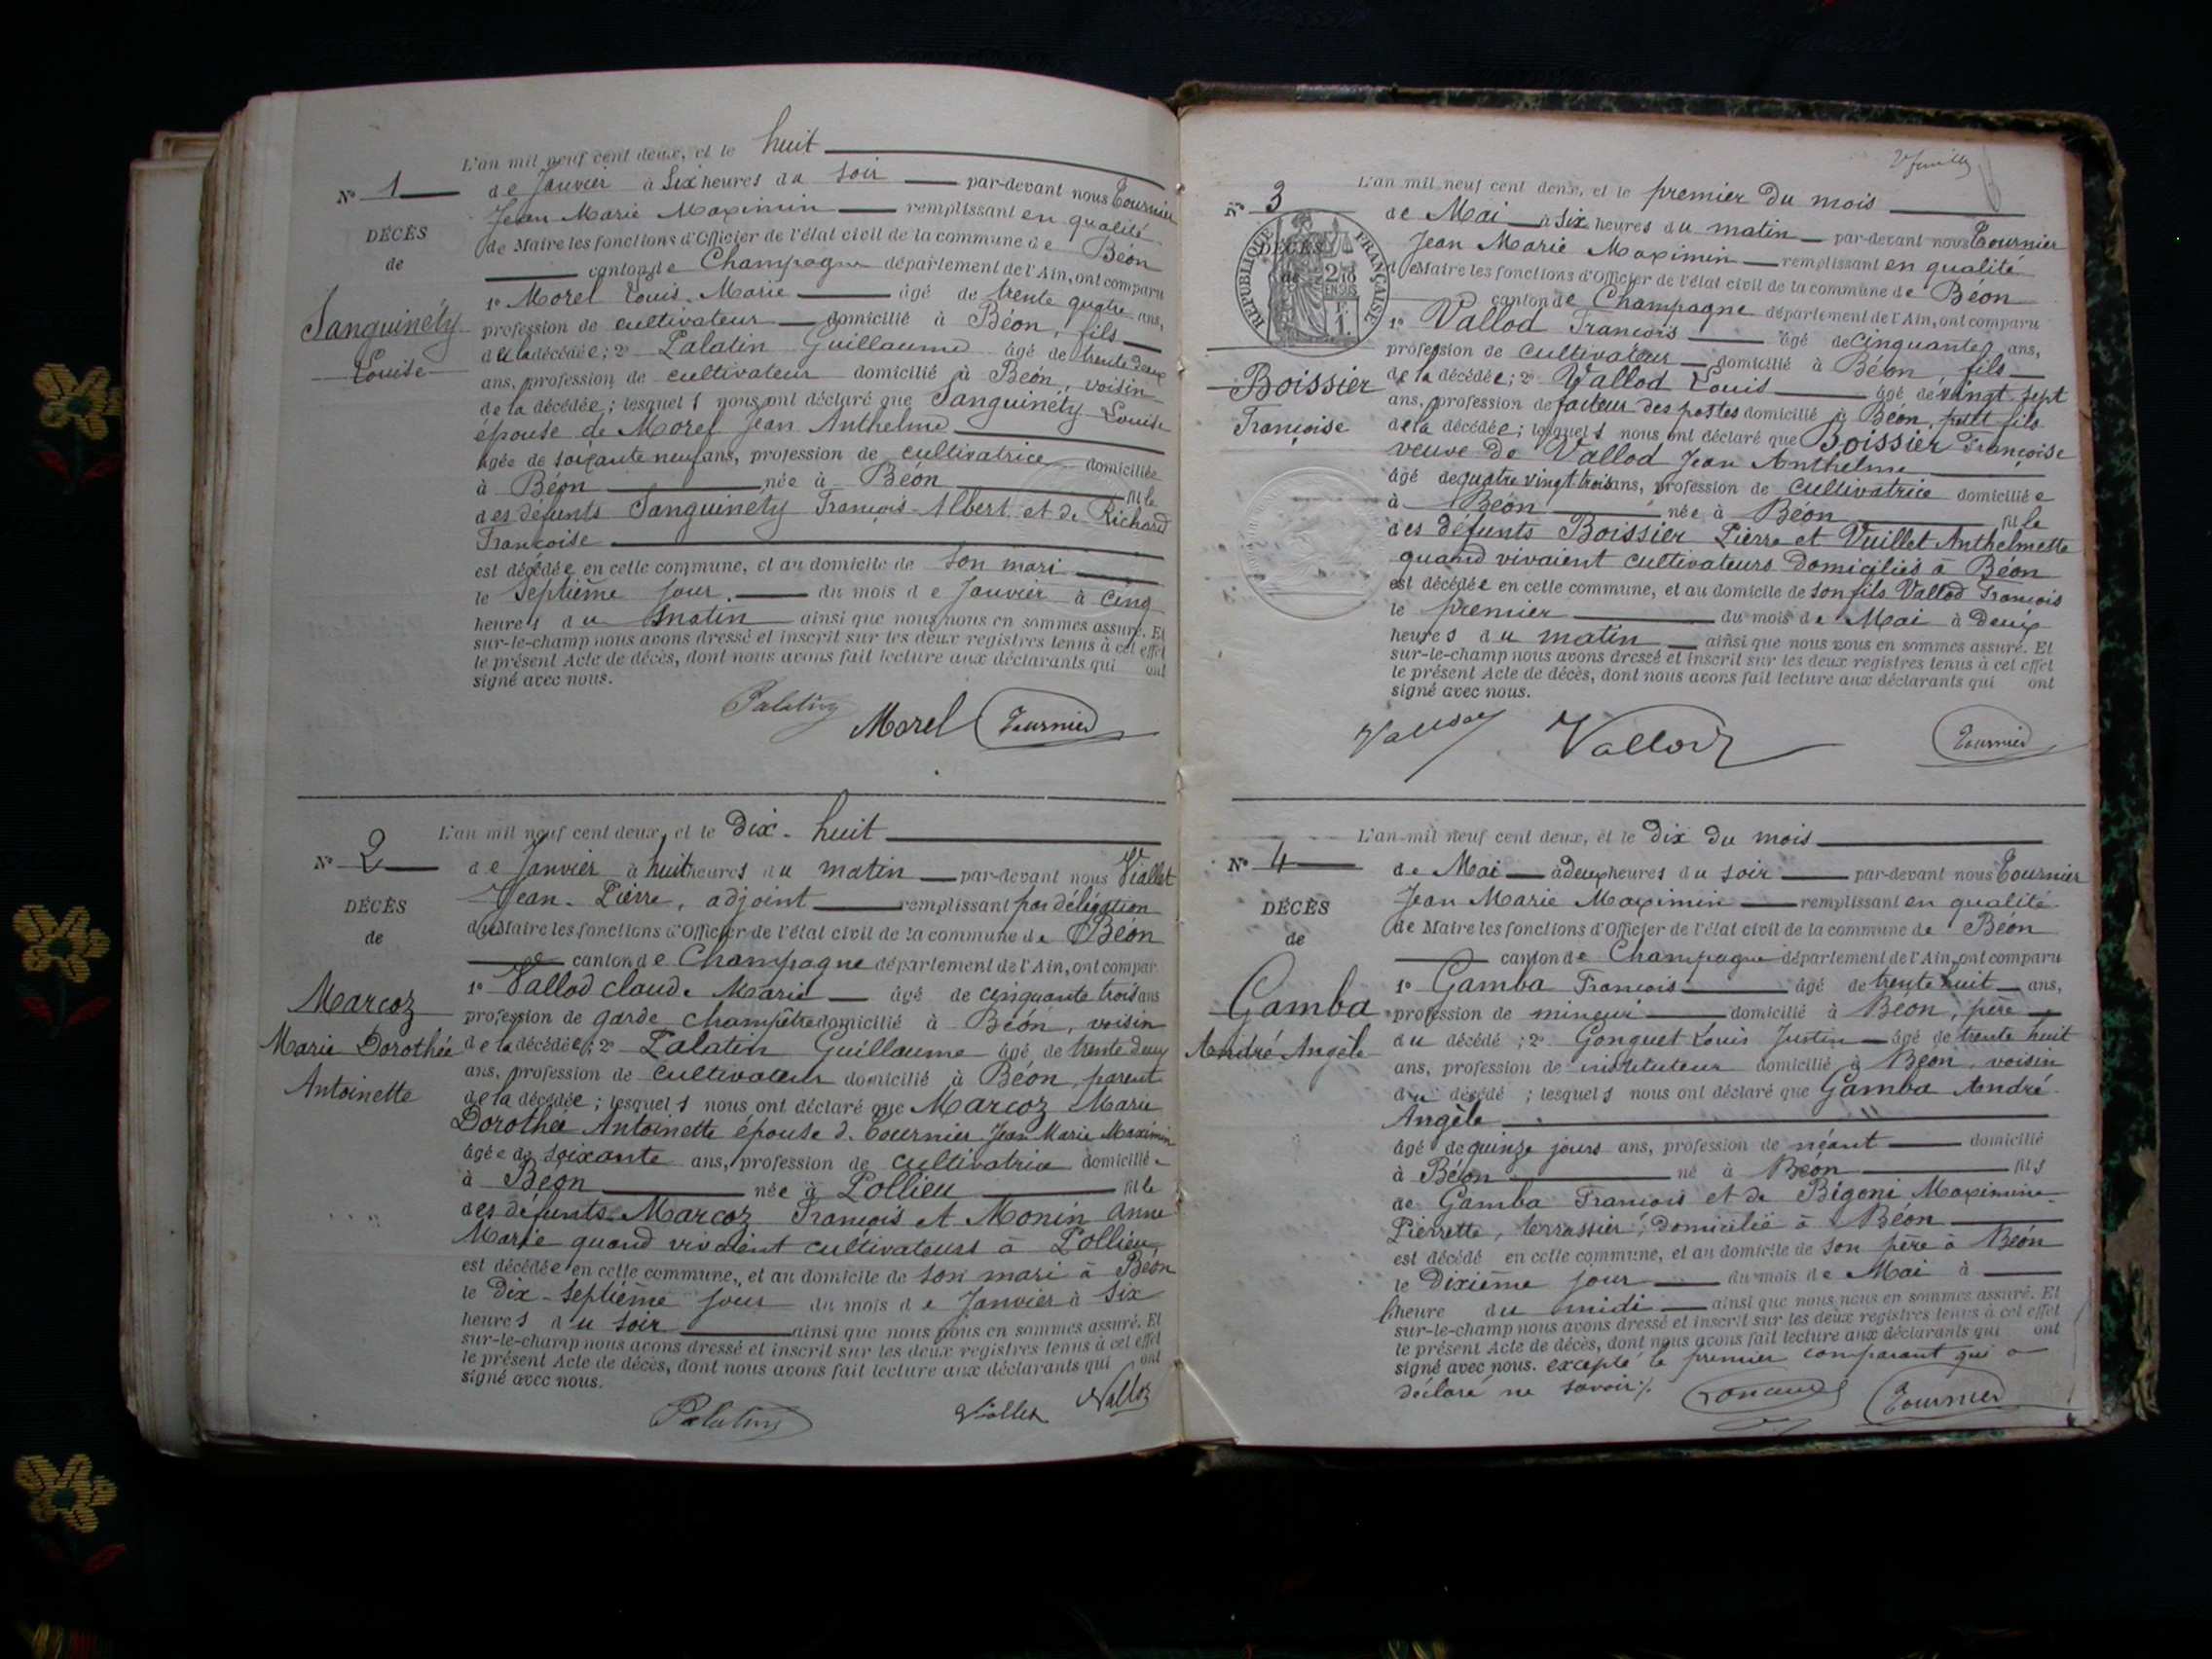 L'an mil neuf cent deux, et le huit
N° 1
de Janvier à Six heures du soir par-devant nous Tournier
Jean Marie Maximin remplissant en qualité
DÉCÈS
de Maire les fonctions d'Officier de l'état civil de la commune de Béon
de
canton de Champagne département de l'Ain, ont comparu
1° Morel Louis Marie âgé de trente quatre ans,
Sanguinéty
profession de cultivateur domicilié à Béon, fils
Louise
de la décédée; 2° Palatin Guillaume âgé de trente deux
ans, profession de cultivateur domicilié à Béon, voisin
de la décédée; lesquels nous ont déclaré que Sanguinéty Louise
épouse de Morel Jean Anthelme
âgée de soixante neuf ans, profession de cultivatrice domiciliée
à Béon née à Béon fille
des défunts Sanguinéty François Albert et de Richard
Françoise
est décédée en cette commune, et au domicile de son mari
le Septième jour du mois de Janvier à cinq
heures du matin ainsi que nous nous en sommes assuré. Et
sur-le-champ nous avons dressé et inscrit sur les deux registres tenus à cet effet
le présent Acte de décès, dont nous avons fait lecture aux déclarants qui ont
signé avec nous.
Palatin Morel Tournier
L'an mil neuf cent deux, et le Dix-huit
N° 2
de Janvier à huit heures du matin par-devant nous Viallet
Jean-Pierre, adjoint remplissant par délégation
DÉCÈS
du Maire les fonctions d'Officier de l'état civil de la commune de Béon
de
canton de Champagne département de l'Ain, ont compar
1° Vallod Claude Marie âgé de cinquante trois ans
Marcoz
profession de garde champêtre domicilié à Béon, voisin
Marie Dorothée
de la décédée; 2° Palatin Guillaume âgé de trente deux
Antoinette
ans, profession de cultivateur domicilié à Béon, parent
de la décédée; lesquels nous ont déclaré que Marcoz Marie
Dorothée Antoinette épouse de Tournier Jean Marie Maximin
âgée de soixante ans, profession de cultivatrice domiciliée
à Béon née à Pollieu fille
des défunts Marcoz François et Monin Anne
Marie quand vivaient cultivateurs à Pollieu
est décédée en cette commune, et au domicile de son mari à Béon
le Dix-Septième jour du mois de Janvier à Six
heures du soir ainsi que nous nous en sommes assuré. Et
sur-le-champ nous avons dressé et inscrit sur les deux registres tenus à cet effet
le présent Acte de décès, dont nous avons fait lecture aux déclarants qui ont
signé avec nous.
Palatin Viallet Vallod
L'an mil neuf cent deux, et le premier du mois
N° 3
de Mai à Six heures du matin par-devant nous Tournier
Jean Marie Maximin remplissant en qualité
RÉPUBLIQUE FRANÇAISE
DÉCÈS
de Maire les fonctions d'Officier de l'état civil de la commune de Béon
de
2/10
EN SUS
canton de Champagne département de l'Ain, ont comparu
1° Vallod François âgé de cinquante ans,
profession de cultivateur domicilié à Béon, fils
Boissier
de la décédée; 2° Vallod Louis âgé de vingt sept
ans, profession de facteur des postes domicilié à Béon, petit fils
Françoise
de la décédée; lesquels nous ont déclaré que Boissier Françoise
veuve de Vallod Jean Anthelme
âgé de quatre vingt trois ans, profession de cultivatrice domiciliée
à Béon née à Béon fille
des défunts Boissier Pierre et Vuillet Anthelmette
quand vivaient cultivateurs domiciliés à Béon
est décédée en cette commune, et au domicile de son fils Vallod François
le premier du mois de Mai à deux
heures du matin ainsi que nous nous en sommes assuré. Et
sur-le-champ nous avons dressé et inscrit sur les deux registres tenus à cet effet
le présent Acte de décès, dont nous avons fait lecture aux déclarants qui ont
signé avec nous.
Vallod Vallod Tournier
L'an mil neuf cent deux, et le dix du mois
N° 4
de Mai à deux heures du soir par-devant nous Tournier
Jean Marie Maximin remplissant en qualité
DÉCÈS
de Maire les fonctions d'Officier de l'état civil de la commune de Béon
de
canton de Champagne département de l'Ain, ont comparu
1° Gamba François âgé de trente huit ans,
Gamba
profession de mineur domicilié à Béon, père
André Angèle
du décédé; 2° Gonguet Louis Justin âgé de trente huit
ans, profession de instituteur domicilié à Béon, voisin
du décédé; lesquels nous ont déclaré que Gamba André
Angèle
âgé de quinze jours ans, profession de néant domicilié
à Béon né à Béon fils
de Gamba François et de Bigoni Maximine
Pierrette, terrassier, domicilié à Béon
est décédé en cette commune, et au domicile de son père à Béon
le Dixième jour du mois de Mai à
heure du midi ainsi que nous nous en sommes assuré. Et
sur-le-champ nous avons dressé et inscrit sur les deux registres tenus à cet effet
le présent Acte de décès, dont nous avons fait lecture aux déclarants qui ont
signé avec nous. excepté le premier comparant qui a
déclaré ne savoir
Tournier